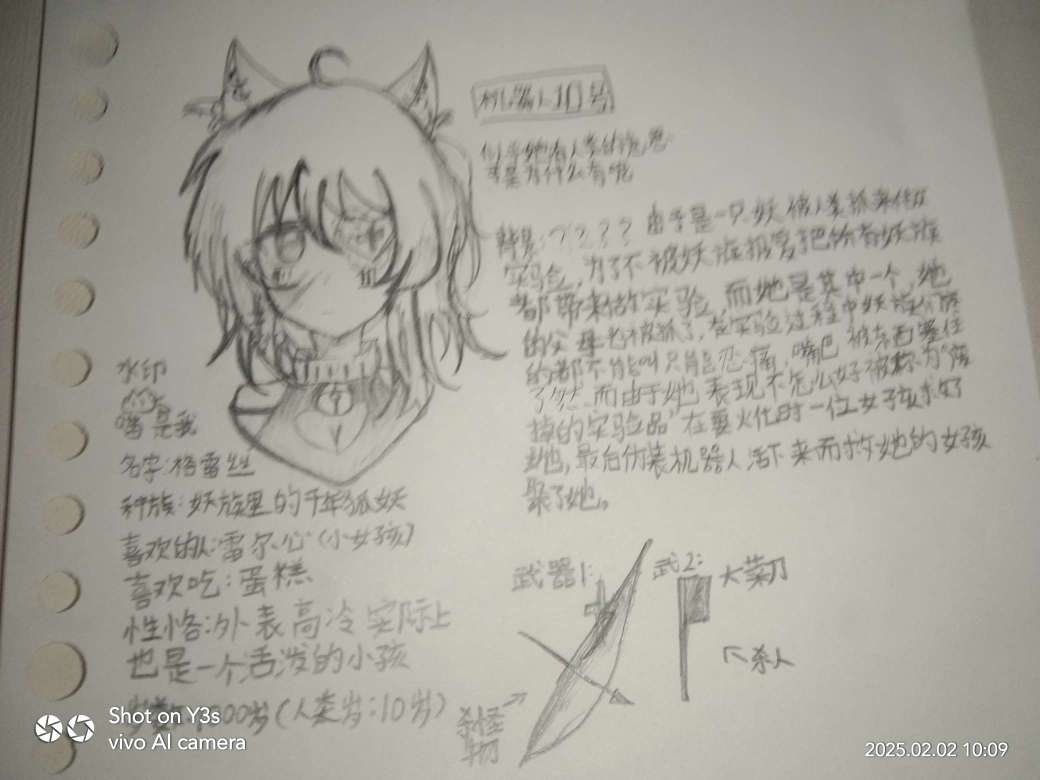 机器人10号
似乎她有人类的意思
可是为什么有呢
背景:????由于是一只妖 被人类抓来做
实验,为了不被妖族报复把所有妖族
都带来做实验,而她是其中一个,她
的父母也被抓了,在实验过程中妖族
的都不能叫只能忍痛,嘴巴被东西塞住
了然 而由于她表现不怎么好被称为"废
掉的实验品"在要火化时一位女孩求好
她,最后伪装机器人活下来而救她的女孩
娶了她。
水印
嘻是我
名字:格雷丝
种族:妖族里的千年狐妖
喜欢的人:雷尔心(小女孩)
喜欢吃:蛋糕
性格:外表高冷实际上
也是一个活泼的小孩
岁(人类岁:10岁)
武器1:
杀怪
物
武2:
大菜刀
杀人
Shot on Y3s
vivo AI camera
2025.02.02 10:09